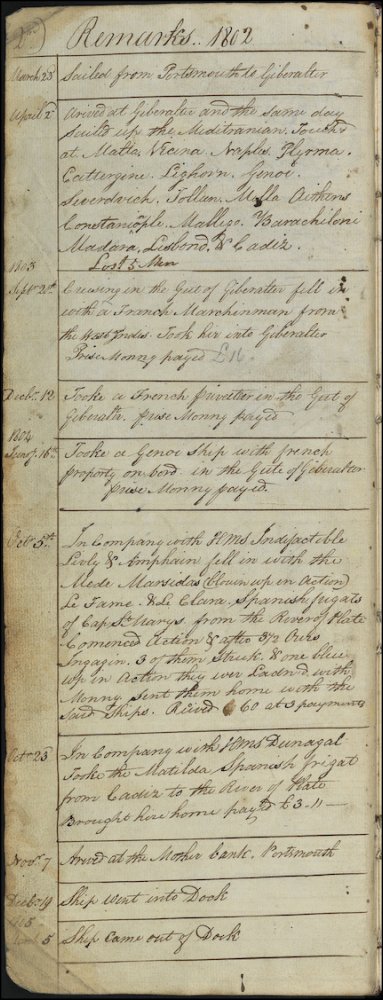 2nd
Remarks. 1802
March 23 Sailed from Portsmouth to Giberalter
April 2 Arived at Giberalter and the same day
Saild up the Meditranian. Toucht
at Malta,
Naples.
Cattergene. Lighorn. Genoe.
Tollun.
Constantople. Malligo. Barachiloni
Madara, Lisbond. & Cadiz.
Lost 5 Men
1803
Sept 21st Crusing in the Gut of Giberalter fell in
with a French Marchinman from
the West Indies. Took her into Giberalter
Prise Monny payed £16
Decbr 12 Tooke a French Privetter in the Gut of
Giberalter. prise Monny payed
1804
16th Tooke a Genoe Ship with french
property on bord in the Gute of Giberalter
prise Monny payed.
Octr 5th In Company with HMS Indifactible
Livly & Amphain fell in with the
Mede Marsides (blown up in Action)
Le Fame. & Le Clara. Spanish frigats
of Cap St Marys from the River of Plate
Comenced Action & after 3½ Ours
Ingagin. 3 of them Struck. & one blue
up in Action they wer Laden'd with
Monny. Sent them home with the
Said Ships. Recived £60 at 3 payments
Octr 25 In Company with HMS Dunagal
Tooke the Matilda Spanish frigat
from Cadiz to the River of Plate
Brought hir home payed £3-11-
Novr 7 Arived at the Mother bank. Portsmouth
Decbr 19 Ship Went into Dock
5 Ship Came out of Dock